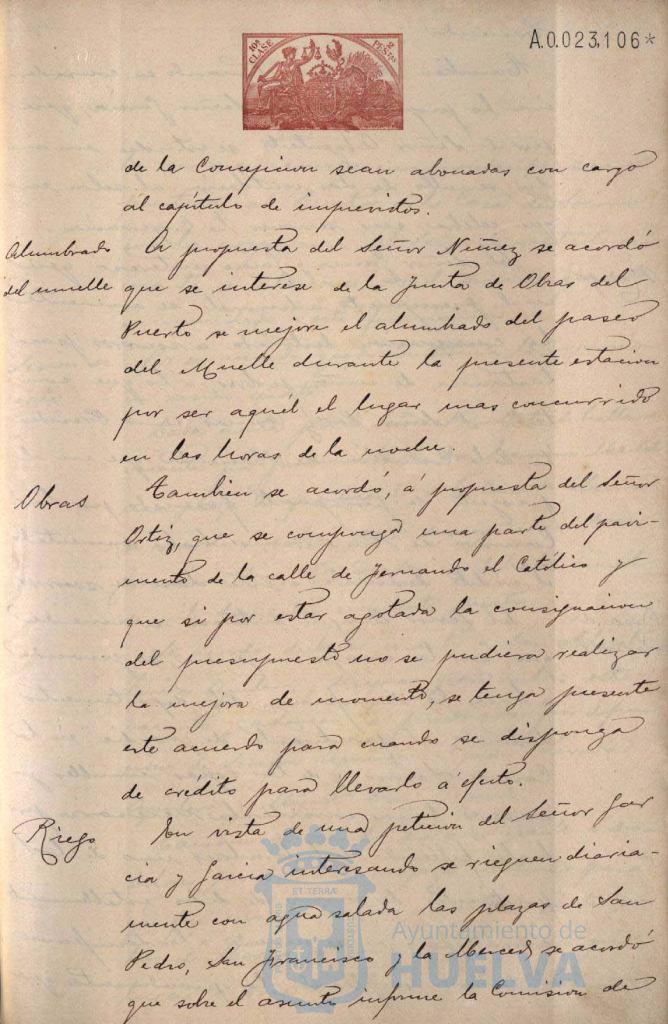 10ª CLASE 2 PESETAS
A.0.023,106*
de la Concepcion sean abonadas con cargo
al capítulo de imprevistos.
Alumbrado
del muelle
A propuesta del Señor Nuñez se acordó
que se interese de la Junta de Obras del
Puerto se mejore el alumbrado del paseo
del Muelle durante la presente estacion
por ser aquél el lugar mas concurrido
en las horas de la noche.
Obras
Tambien se acordó, á propuesta del Señor
Ortiz, que se componga una parte del pavi-
mento de la calle de Fernando el Católico y
que si por estar agotada la consignacion
del presupuesto no se pudiera realizar
la mejora de momento, se tenga presente
este acuerdo para cuando se disponga
de crédito para llevarlo á efecto.
Riego
En vista de una peticion del Señor Gar
cia y Garcia interesando se rieguen diaria-
mente con agua salada las plazas de San
Pedro, San Francisco y la Merced, se acordó
que sobre el asunto informe la Comision de
Ayuntamiento de
HUELVA